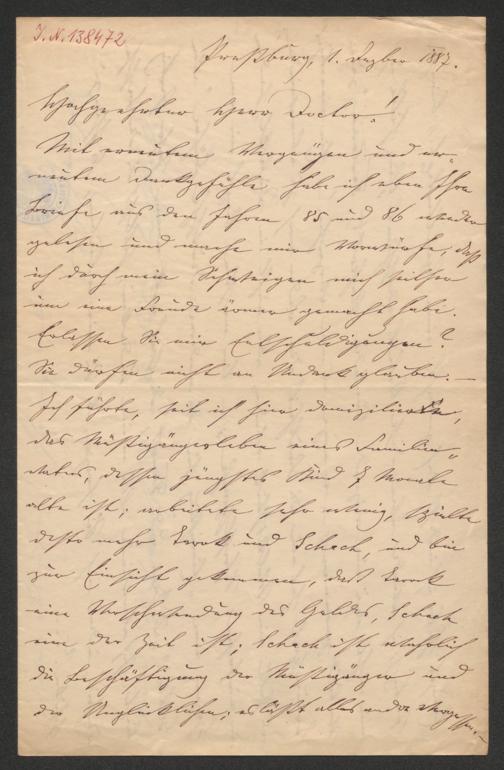 I.N. 138472
Preßburg, 1. Dezber 1887.
Hochgeehrter Herr Doctor!
Mit erneutem Vergnügen und er-
neutem Dankgefühle habe ich eben Ihre
Briefe aus den Jahren 85 und 86 wieder
gelesen und mache mir Vorwürfe, daß
ich durch mein Schweigen mich selber
um eine Freude ärmer gemacht habe.
Erlassen Sie mir Entschuldigungen?
Sie dürfen nicht an Undank glauben. —
Ich führte, seit ich hier domizilierte,
das Müßiggängerleben eines Familien-
vaters, dessen jüngstes Kind 7 Monate
alt ist; arbeitete sehr wenig, spielte
desto mehr Tarok und Schach, und bin
zur Einsicht gekommen, daß Tarok
eine Verschwendung des Geldes, Schach
eine der Zeit ist; Schach ist wahrlich
die Beschäftigung der Müßiggänger und
der Unglücklichen; es läßt alles andre vergessen. —